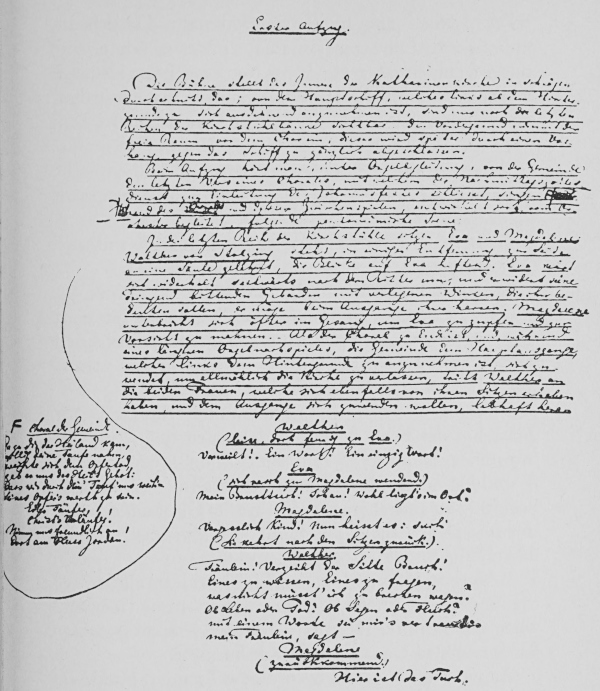 Erster Aufzug.
Die Bühne stellt das Innere der Katharinenkirche in schrägem
Durchschnitt dar; von dem Hauptschiff, welches links ab dem Hinter-
grunde zu sich ausdehnend anzunehmen ist, sind nur noch die letzten
Reihen der Kirchstuhlbänke sichtbar: den Vordergrund nimmt der
freie Raum vor dem Chor ein; dieser wird später durch einen Vor-
hang gegen das Schiff zu gänzlich abgeschlossen.
Beim Aufzug hört man, unter Orgelbegleitung, von der Gemeinde
den letzten Vers eines Chorales, mit welchem der Nachmittagsgottes-
dienst zur Einleitung des Johannisfestes schliesst, singen.
Während des Chorals und dessen Zwischenspielen, entwickelt sich, vom Or-
chester begleitet, folgende pantomimische Scene:
In der letzten Reihe der Kirchstühle sitzen Eva und Magdalene;
Walther von Stolzing steht, in einiger Entfernung, zur Seite
an eine Säule gelehnt, die Blicke auf Eva heftend. Eva kehrt
sich wiederholt seitwärts nach dem Ritter um, und erwidert seine
dringend bittenden Gebärden mit verlegenen Winken, die ihm be-
deuten sollen, er möge beim Ausgange ihrer harren. Magdalene
unterbricht sich öfter im Gesang, um Eva zu zupfen und zur
Vorsicht zu mahnen. Als der Choral zu Ende ist, und während
eines längeren Orgelnachspieles, die Gemeinde dem Hauptausgange,
welcher links dem Hintergrunde zu anzunehmen ist, sich zu-
wendet, um allmählich die Kirche zu verlassen, tritt Walther an
die beiden Frauen, welche sich ebenfalls von ihren Sitzen erhoben
haben, und dem Ausgange sich zuwenden wollen, lebhaft heran
Walther
(leise, doch feurig zu Eva.)
Verweilt!. Ein Wort! Ein einzig Wort!
Eva
(sich rasch zu Magdalene wendend.)
Mein Brusttuch! Schau! Wohl liegt's im Ort?
Magdalene.
Vergesslich Kind! Nun heisst es: such!
(Sie kehrt nach den Sitzen zurück.)
Walther
Fräulein! Verzeiht der Sitte Bruch!
Eines zu wissen, Eines zu fragen,
was nicht müsst' ich zu brechen wagen?
Ob Leben oder Tod? Ob Segen oder Fluch?
mit einem Worte sei mir's vertraut:
mein Fräulein, sagt —
Magdalene
(zurückkommend.)
Hier ist das Tuch.
F Choral der Gemeinde.
Da zu dir der Heiland kam,
willig deine Taufe nahm,
weihte sich dem Opfertod,
gab er uns des Heil's Gebot:
dass wir durch dein' Tauf' uns weih'n
seines Opfers werth zu sein.
Edler Täufer,
Christs Vorläufer!
Nimm uns freundlich an
dort am Fluss Jordan.